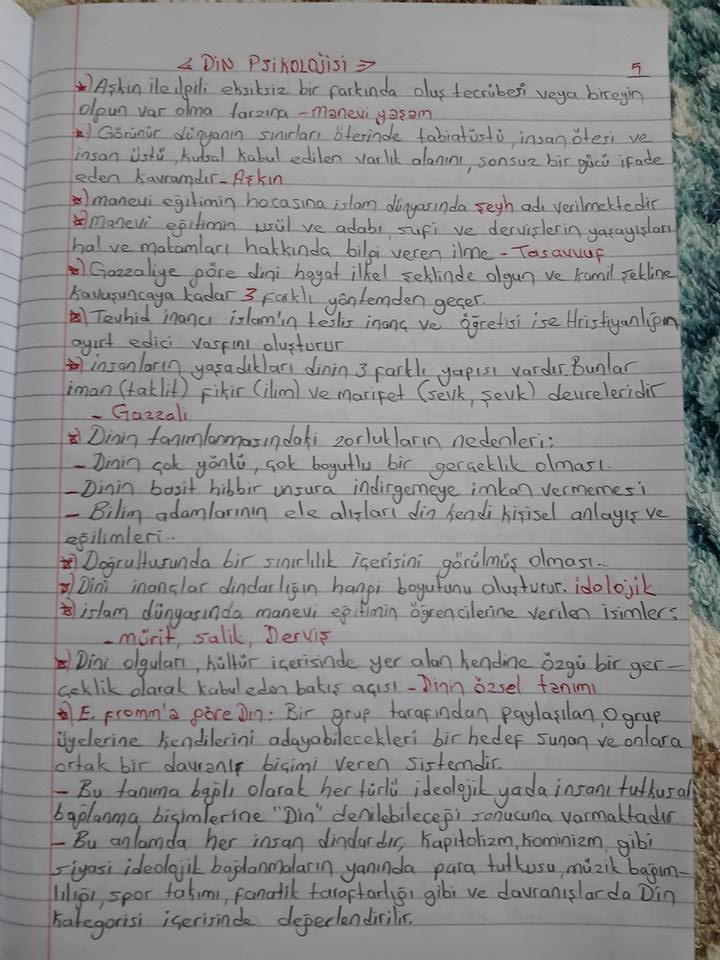 < DİN PSİKOLOJİSİ > 5
*) Aşkın ile ilgili eksiksiz bir farkında oluş tecrübesi veya bireyin
olgun var olma tarzına - manevi yaşam
*) Görünür dünyanın sınırları ötesinde tabiatüstü, insan ötesi ve
insan üstü, kutsal kabul edilen varlık alanını, sonsuz bir gücü ifade
eden kavramdır - Aşkın
*) manevi eğitimin hocasına islam dünyasında şeyh adı verilmektedir
*) Manevi eğitimin usül ve adabı, sufi ve dervişlerin yaşayışları
hal ve makamları hakkında bilgi veren ilme - Tasavvuf
*) Gazzaliye göre dini hayat ilkel şeklinde olgun ve kamil şekline
kavuşuncaya kadar 3 farklı yöntemden geçer.
*) Tevhid inancı islam'ın teslis inanç ve öğretisi ise Hristiyanlığın
ayırt edici vasfını oluşturur
*) insanların yaşadıkları dinin 3 farklı yapısı vardır. Bunlar
iman (taklit) fikir (ilim) ve marifet (sevk, şevk) devreleridir
- Gazzali
*) Dinin tanımlanmasındaki zorlukların nedenleri:
- Dinin çok yönlü, çok boyutlu bir gerçeklik olması.
- Dinin basit hibbir unsura indirgemeye imkan vermemesi
- Bilim adamlarının ele alışları din kendi kişisel anlayış ve
eğilimleri..
*) Doğrultusunda bir sınırlılık içerisini görülmüş olması..
*) Dini inançlar dindarlığın hangi boyutunu oluşturur. idolojik
*) islam dünyasında manevi eğitimin öğrencilerine verilen isimler:
- mürit, salik, Derviş
*) Dini olguları, kültür içerisinde yer alan kendine özgü bir ger-
çeklik olarak kabul eden bakış açısı - Dinin özsel tanımı
*) E. fromm'a göre Din: Bir grup tarafından paylaşılan, O grup
üyelerine kendilerini adayabilecekleri bir hedef sunan ve onlara
ortak bir davranış biçimi veren sistemdir.
- Bu tanıma bağlı olarak her türlü ideolojik yada insanı tutkusal
bağlanma biçimlerine "Din" denilebileceği sonucuna varmaktadır
- Bu anlamda her insan dindardır, Kapitolizm, Kominizm, gibi
siyasi ideolojik bağlanmaların yanında para tutkusu, müzik bağım-
lılığı, spor takımı, fanatik taraftarlığı gibi ve davranışlarda Din
kategorisi içerisinde değerlendirilir.